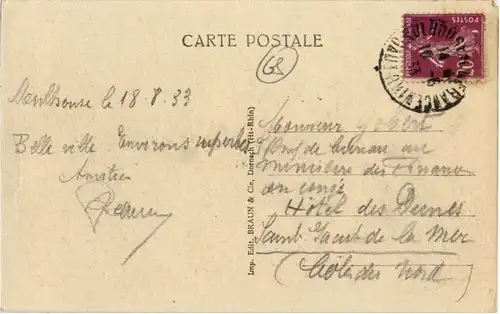 CARTE POSTALE
68
POSTES
Mulhouse le 18.8.33
Belle ville. Environs superbes
Amitiés
Imp. Edit. BRAUN & Cie, Dornach (Ht-Rhin)
Monsieur Jobert
Chef de bureau au
Ministère des Finances
en congé
Hôtel des Dunes
Saint Jacut de la Mer
(Côtes du Nord)